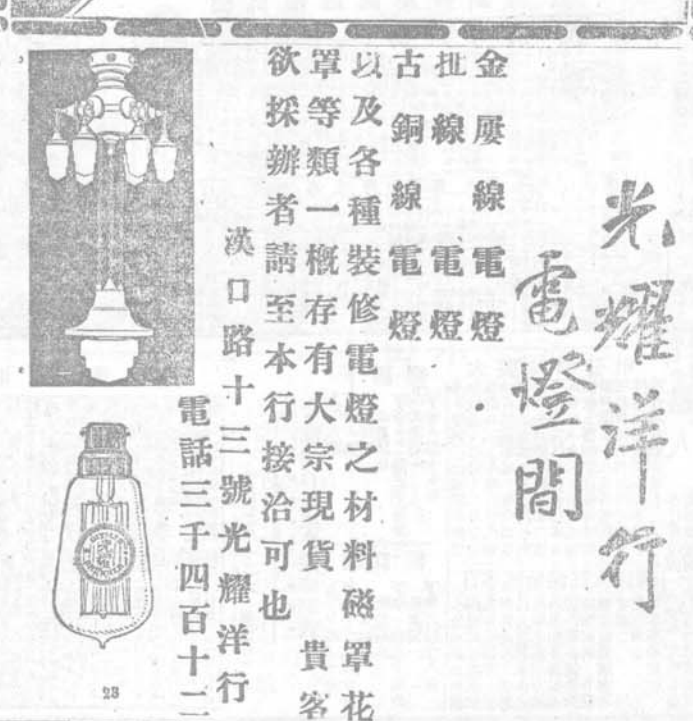 光耀洋行
電燈間
金屬線電燈
批線電燈
古銅線電燈
以及各種裝修電燈之材料磁罩花
罩等類一概存有大宗現貨　貴客
欲採辦者請至本行接洽可也
漢口路十三號光耀洋行
電話三千四百十二
23